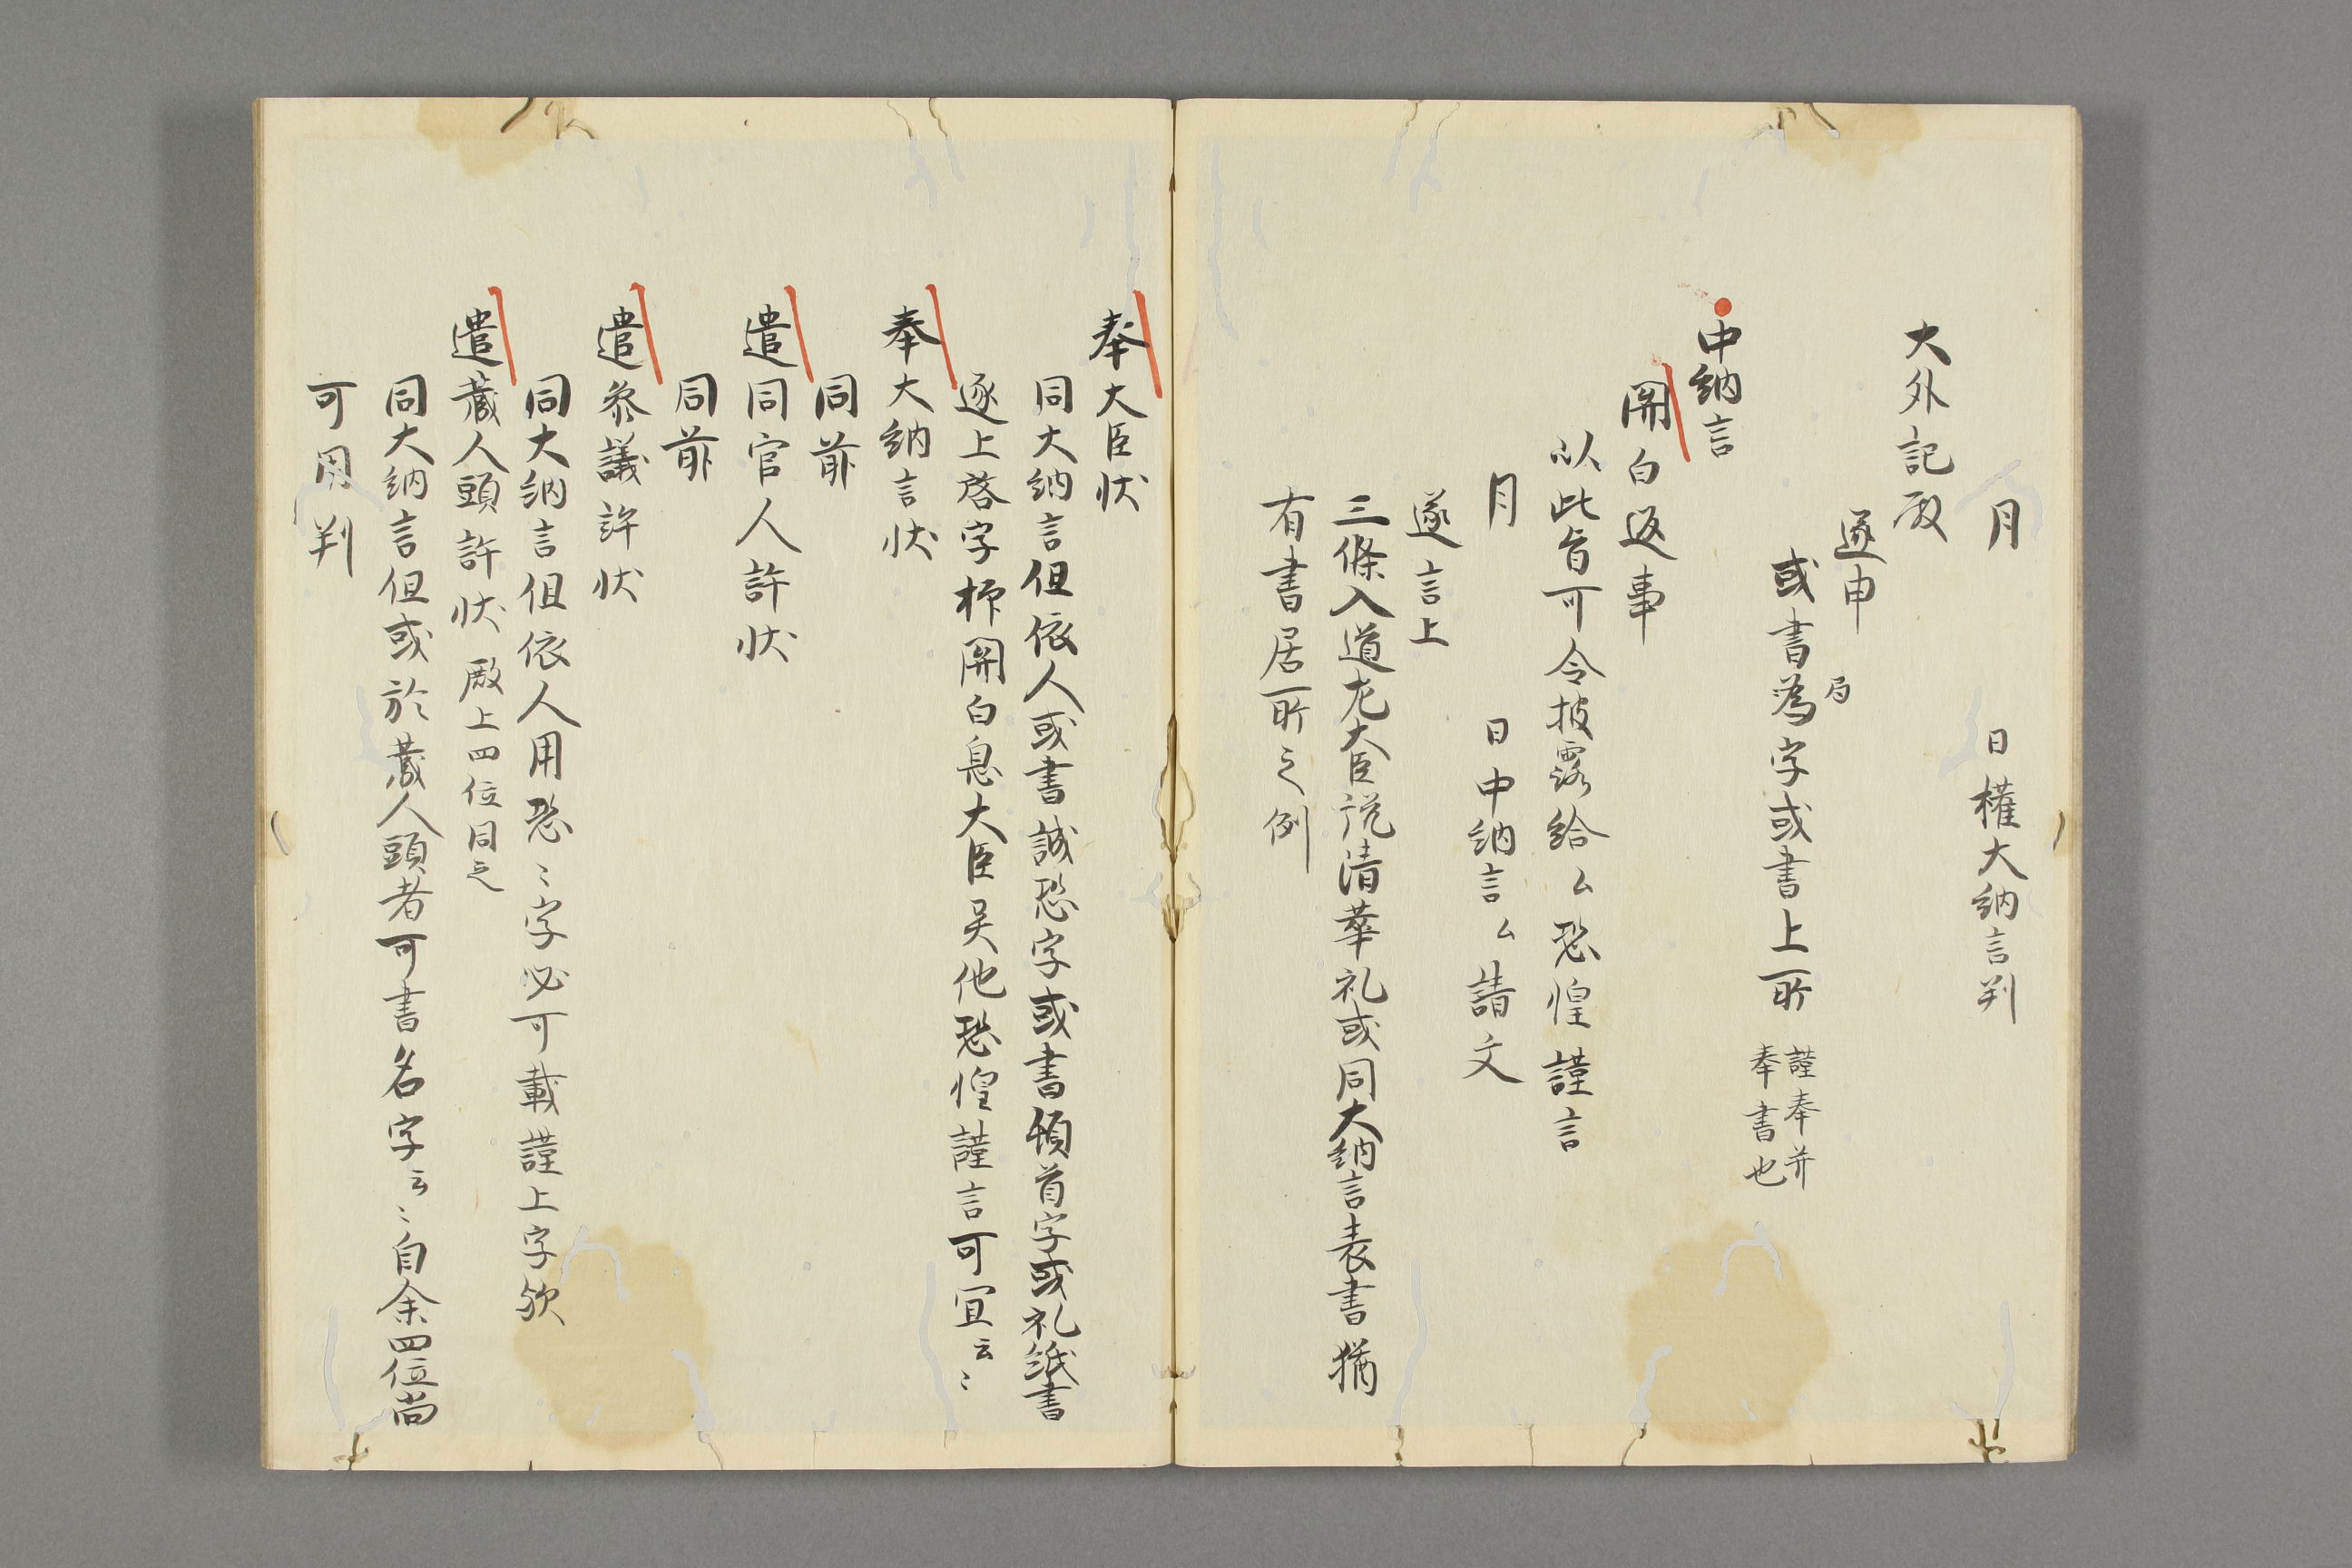 月　　日 權大納言判
大外記殿
逐申
或書為字或書上所 謹奉并
奉書也
局
中納言
関白返事
以此旨可令披露給ム恐惶謹言
月　　日中納言ム請文
逐言上
三條入道左大臣説清華礼或同大納言表書猶
有書居所之例
奉大臣状
同大納言但依人或書誠恐字或書頓首字或礼紙書
逐上啓字抑関白息大臣异他恐惶謹言可宜云〻
奉大納言状
同前
遣同官人許状
同前
遣参議許状
同大納言但依人用恐〻字必可載謹上字欤
遣蔵人頭許状 殿上四位同之
同大納言但或於蔵人頭者可書名字云〻自余四位尚
可用判